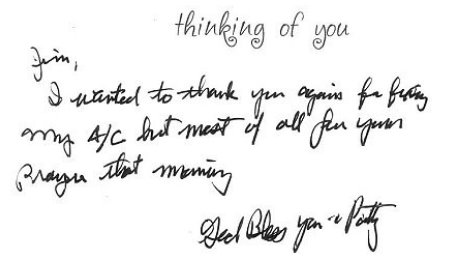 thinking of you
Jim,
I wanted to thank you again for fixing
my A/C but most of all for your
Prayer that morning
God Bless you - Patty